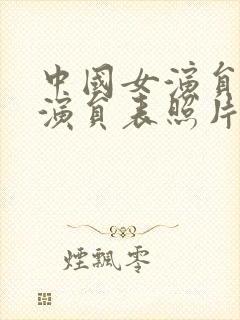 中國女演員
演員表照片
煙飄零